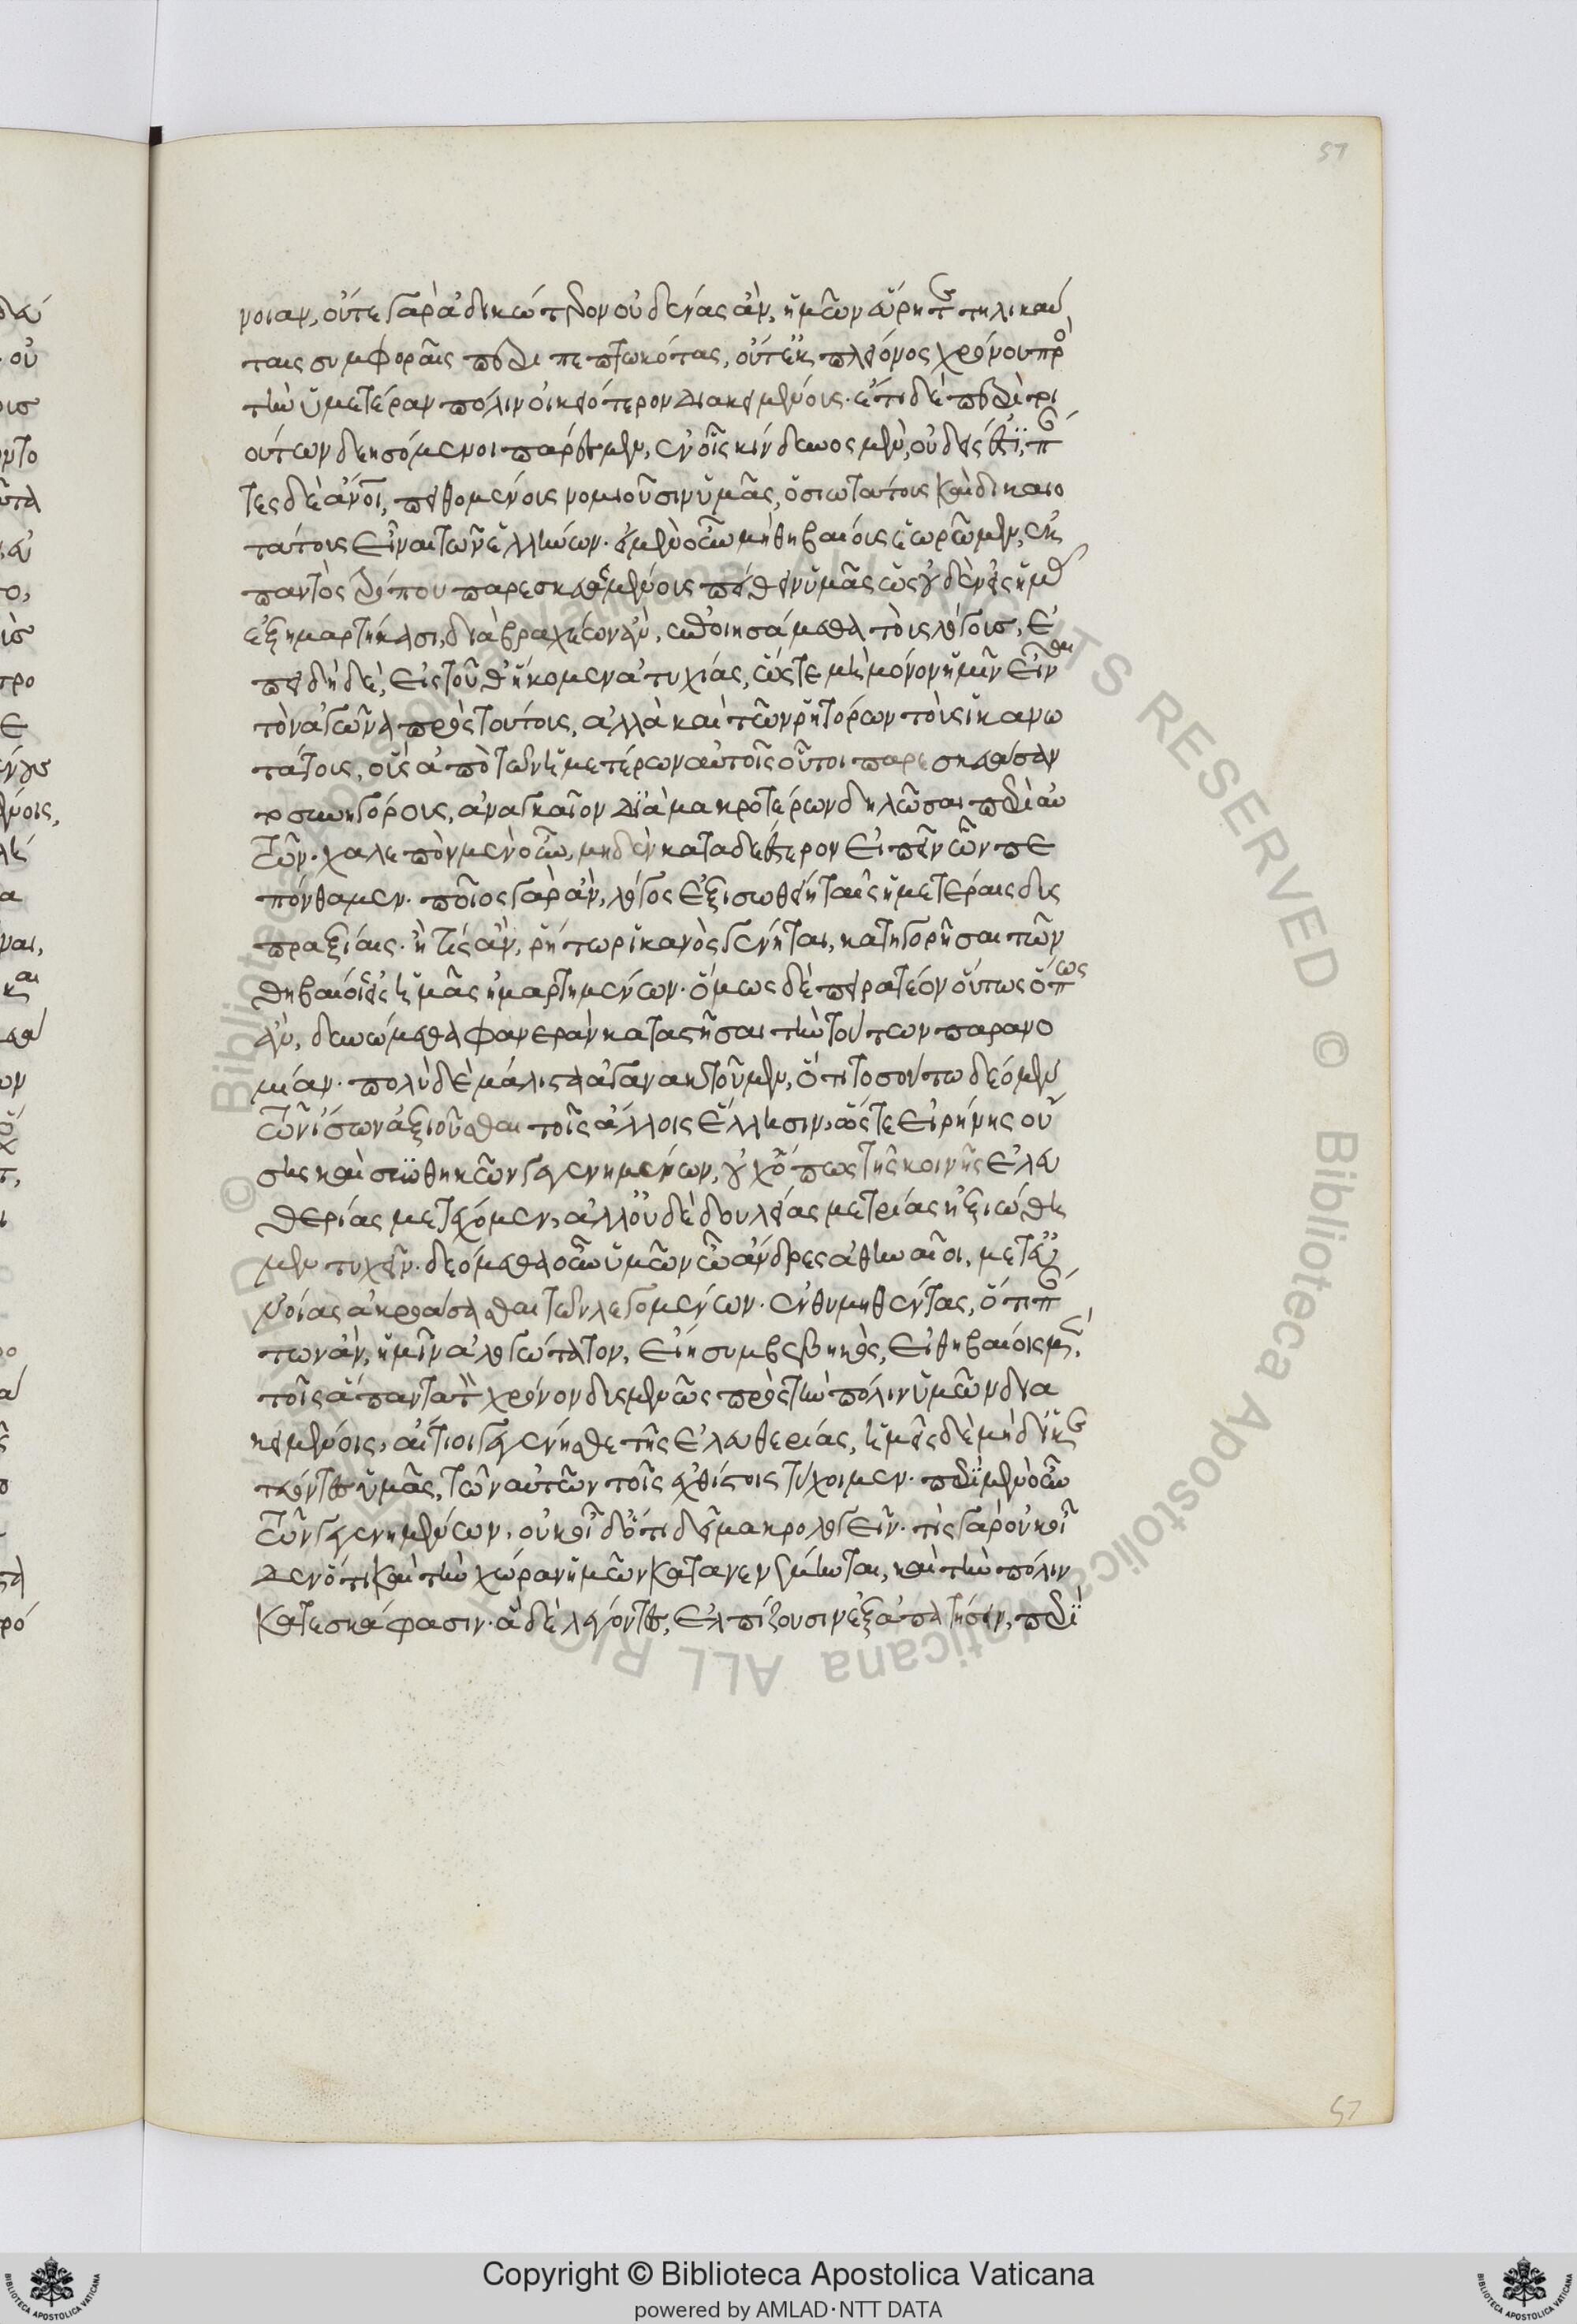 51
νοιαν, οὔτε γὰρ ἀδικώτερον οὐδένας ἂν, ἡμῶν εὕρητε τηλικαύ
ταις συμφοραῖς περιπεπτωκότας, οὔτ' ἐκ πλείονος χρόνου πρὸς
τὴν ὑμετέραν πόλιν οἰκειότερον διακειμένους. ἔτι δὲ περὶ τοι
ούτων δεησόμενοι πάρεσμεν, ἐν οἷς κίνδυνος μὲν, οὐδείς ἐστι, πάν
τες δὲ ἄνοι, πειθομένους νομιοῦσιν ὑμᾶς, ὁσιωτάτους καὶ δικαιο
τάτους εἶναι τῶν ἑλλήνων. εἰ μὲν οὖν μὴ θηβαίους ἑωρῶμεν, ἐκ
παντὸς τρόπου παρεσκευασμένους πείθειν ὑμᾶς ὡς οὐδὲν εἰς ἡμᾶς
ἐξημαρτήκασι, διὰ βραχέων ἂν, ἐποιησάμεθα τοὺς λόγους, ἐ
πειδὴ δὲ, εἰς τοῦθ' ἥκομεν ἀτυχίας, ὥστε μὴ μόνον ἡμῖν εἶναι
τὸν ἀγῶνα πρὸς τούτους, ἀλλὰ καὶ τῶν ῥητόρων τοὺς ἱκανω
τάτους, οὓς ἀπὸ τῶν ἡμετέρων αὐτοῖς οὗτοι παρεσκευάσαν
το συνηγόρους, ἀναγκαῖον διὰ μακροτέρων δηλῶσαι περὶ αὐ
τῶν. χαλεπὸν μὲν οὖν, μηδὲν καταδεέστερον εἰπεῖν ὧν πε
πόνθαμεν. ποῖος γὰρ ἂν, λόγος ἐξισωθείη ταῖς ἡμετέραις δυς
πραξίαις. ἢ τίς ἂν, ῥήτωρ ἱκανὸς γένηται, κατηγορῆσαι τῶν
θηβαίοις εἰς ἡμᾶς ἡμαρτημένων. ὅμως δὲ πειρατέον οὕτως ὅπως
ἂν, δυνώμεθα φανερὰν καταστῆσαι τὴν τούτων παρανο
μίαν. πολὺ δὲ μάλιστα ἀγανακτοῦμεν, ὅτι τοσούτω δέομεν
τῶν ἴσων ἀξιοῦσθαι τοῖς ἄλλοις ἕλλησιν, ὥστε εἰρήνης οὔ
σης καὶ συνθηκῶν γεγενημένων, οὐχ ὅπως τῆς κοινῆς ἐλευ
θερίας μετέχομεν, ἀλλ' οὐδὲ δουλείας μετρίας ἠξιώθη
μεν τυχεῖν. δεόμεθα οὖν ὑμῶν ὦ ἄνδρες ἀθηναῖοι, μετ' εὐ
νοίας ἀκροάσασθαι τῶν λεγομένων. ἐνθυμηθέντας, ὅτι πάν
των ἂν, ἡμῖν ἀλογώτατον, εἴη συμβεβηκὸς, εἰ θηβαίοις μὲν,
τοῖς ἅπαντα τὸν χρόνον δυσμενῶς πρὸς τὴν πόλιν ὑμῶν δια
κειμένοις, αἴτιοι γεγένησθε τῆς ἐλευθερίας, ἡμεῖς δὲ μὴδ' ἱκε
τεύοντες ὑμᾶς, τῶν αὐτῶν τοῖς ἐχθίστοις τύχοιμεν. περὶ μὲν οὖν
τῶν γεγενημένων, οὐκ οἶδ' ὅτι δεῖ μακρολογεῖν. τίς γὰρ οὐκ οἶ
δεν ὅτι καὶ τὴν χώραν ἡμῶν κατανενέμηνται, καὶ τὴν πόλιν
κατεσκάφασιν. ἃ δὲ λέγοντες, ἐλπίζουσιν ἐξαπατήσειν, περὶ
57
© Biblioteca Apostolica Vaticana ALL RIGHTS RESERVED
Copyright © Biblioteca Apostolica Vaticana
powered by AMLAD·NTT DATA